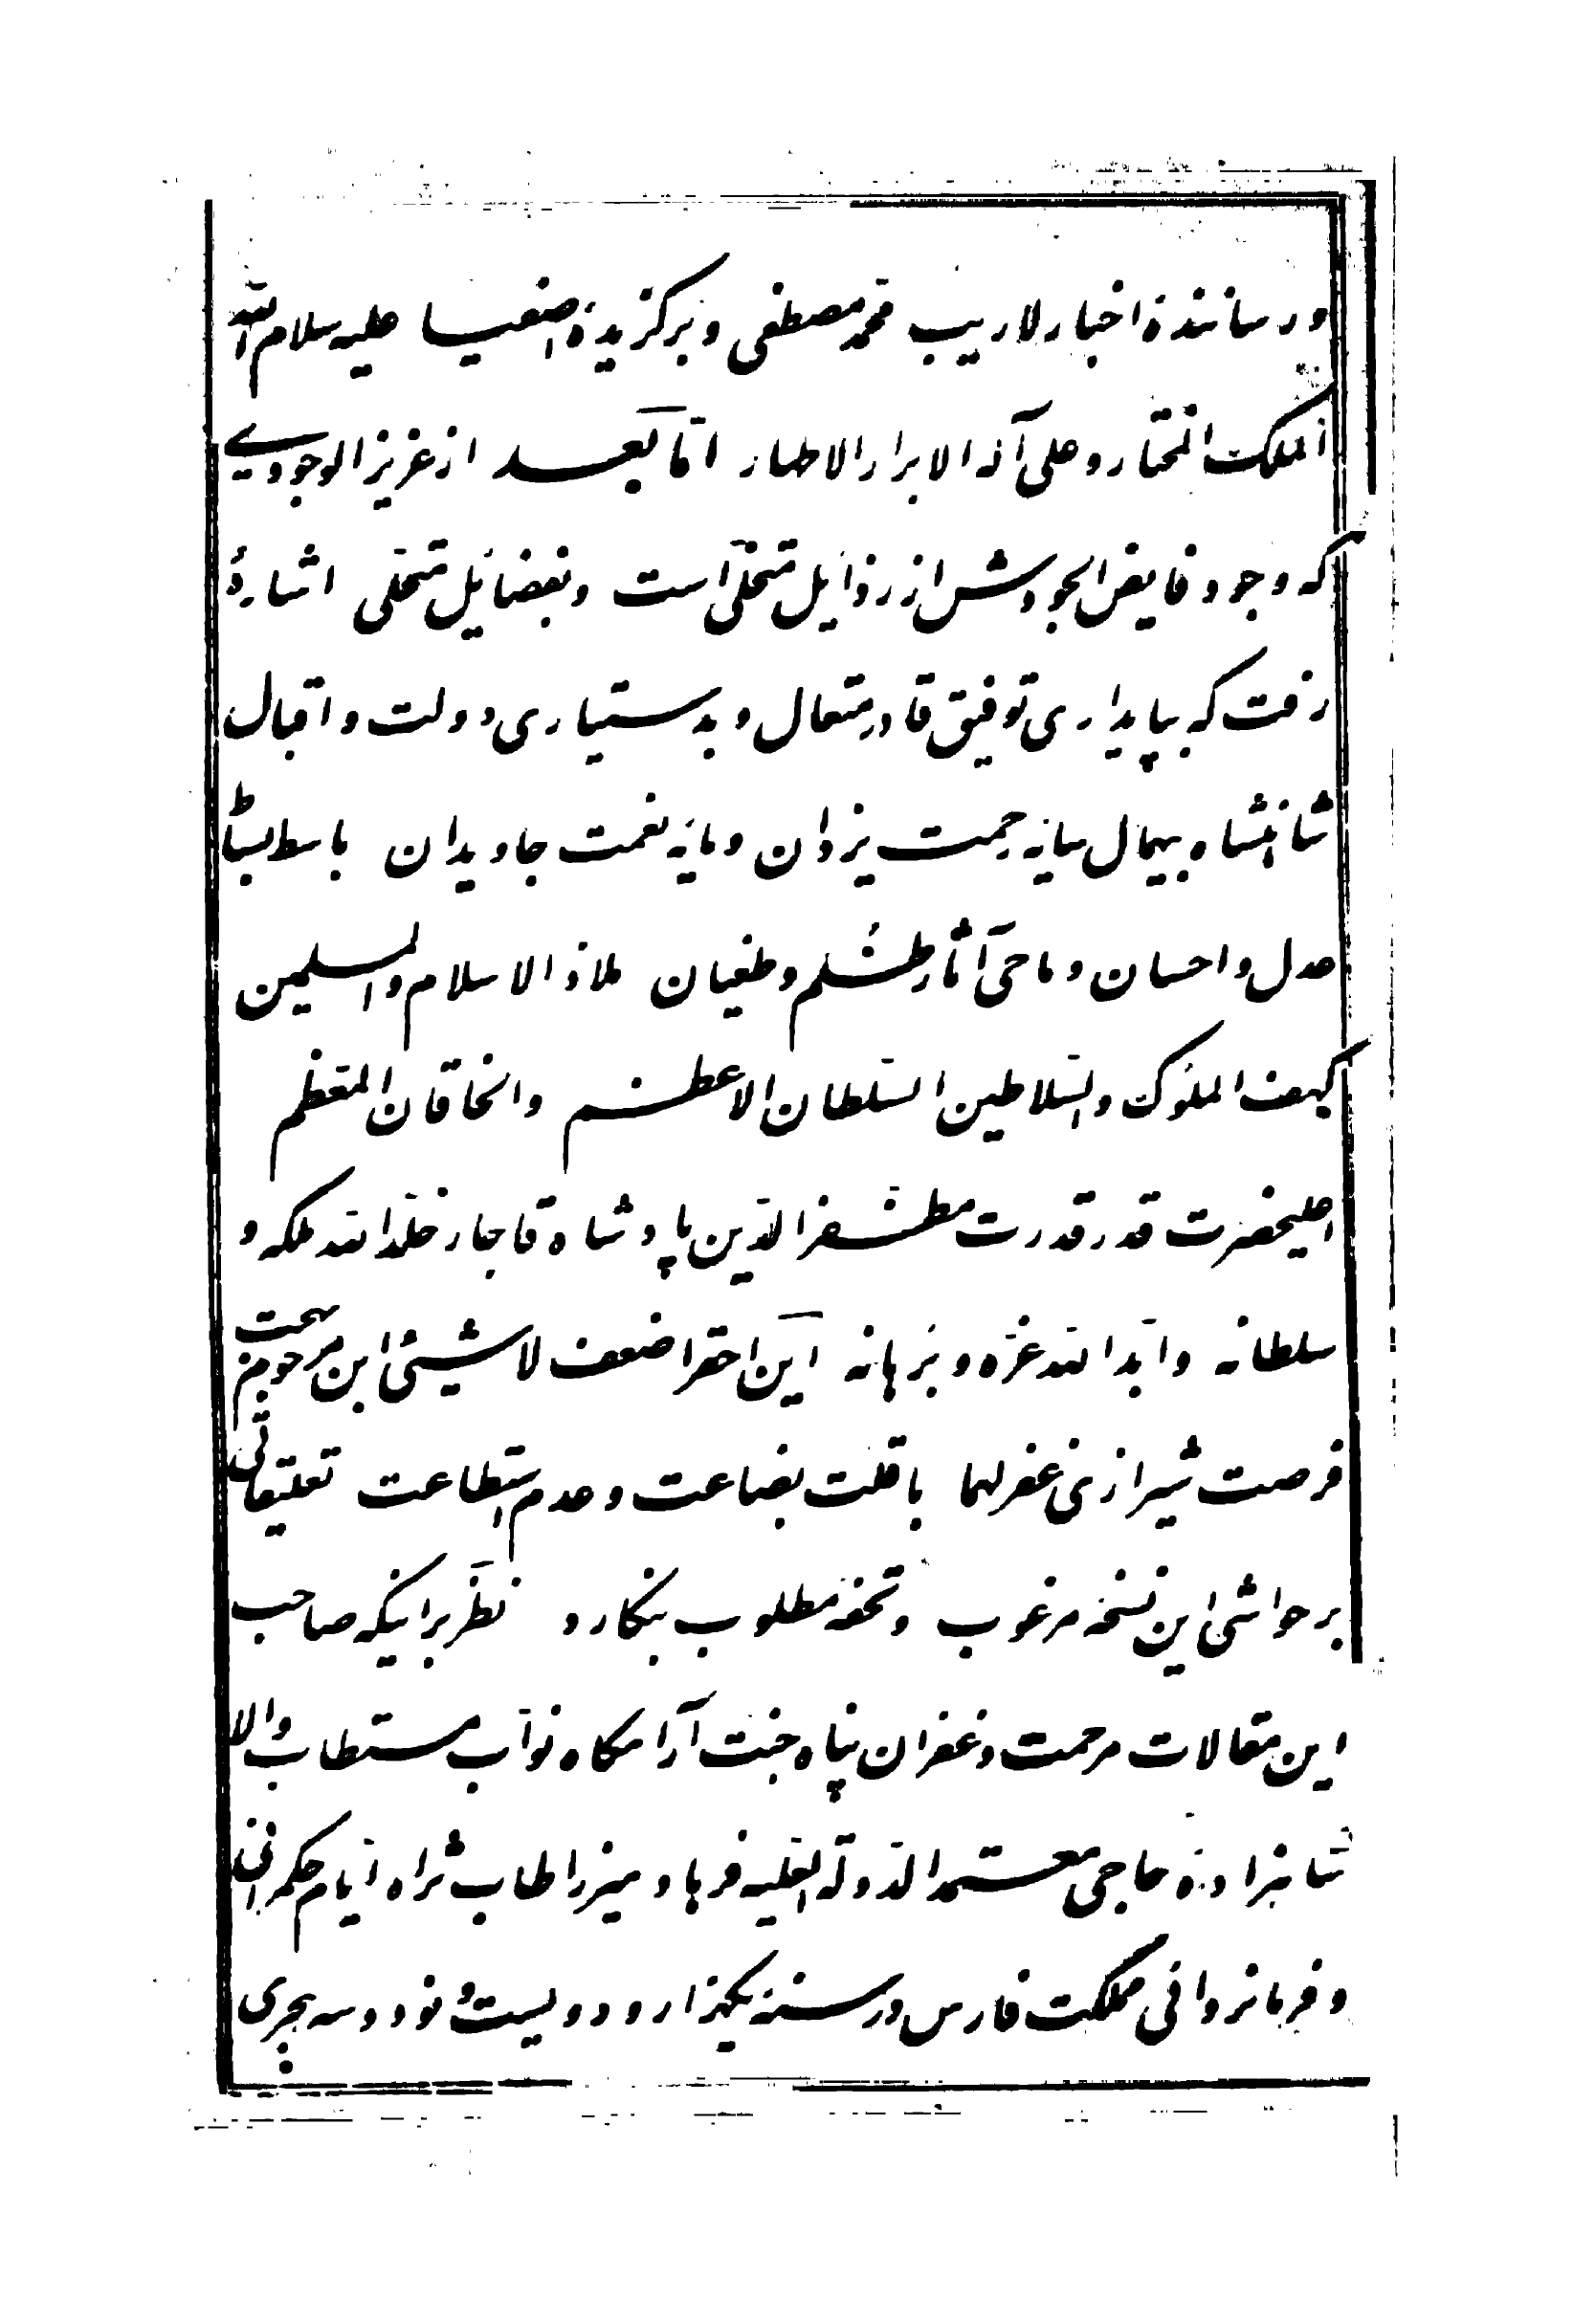 و رسانندهٔ اخبار لاریب محمد مصطفی و برگزیدهٔ اصفیا علیه سلام الله
الملک المختار و علی آله الابرار الاطهار اما بعد از عزیز الوجودی
که وجود فایض الجودش از رذایل متخلّی است و بفضایل متحلّی اشارهٔ
رفت که بپایداری توفیق قادر متعال و بدستیاری دولت و اقبال
شاهنشاه بیهمال سایه رحمت یزدان و مایه نعمت جاویدان باسط بساط
عدل و احسان و ماحی آثار ظلم و طغیان ملاذ الاسلام والمسلمین
کهف الملوک والسلاطین السلطان الاعظم والخاقان المعظم
اعلیحضرت قدر قدرت مظفرالدین پادشاه قاجار خلد الله ملکه و
سلطانه و ابد الله عزه و برهانه این احقر اضعف لاشیئ ابن مرحوم بهجت
فرصت شیرازی غفر لهما با قلت بضاعت و عدم استطاعت تعلیقاتی
بر حواشی این نسخه مرغوب و تحفه مطلوب بنگارد نظر بر اینکه صاحب
این مقالات مرحمت و غفران پناه جنت آرامگاه نواب مستطاب والا
شاهزاده حاجی معتمدالدوله العلیه فرهاد میرزا طاب ثراه ایام حکمرانی
و فرمانروائی مملکت فارس در سنه یکهزار و دویست و نود و سه هجری